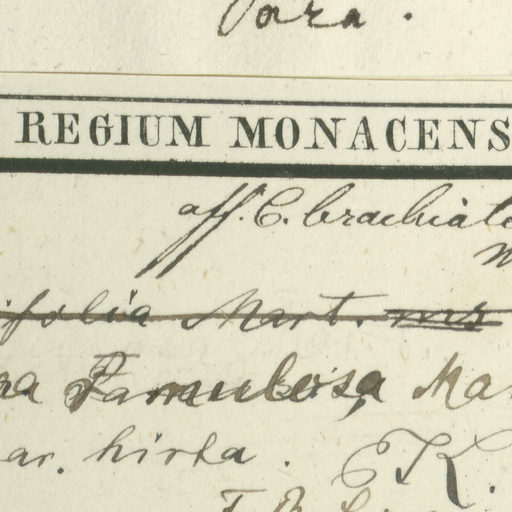 Para.
REGIUM MONACENS
aff. C. brachiat
ifolia Mart. ms
na Famulosa Mar
ar. hirta. K.